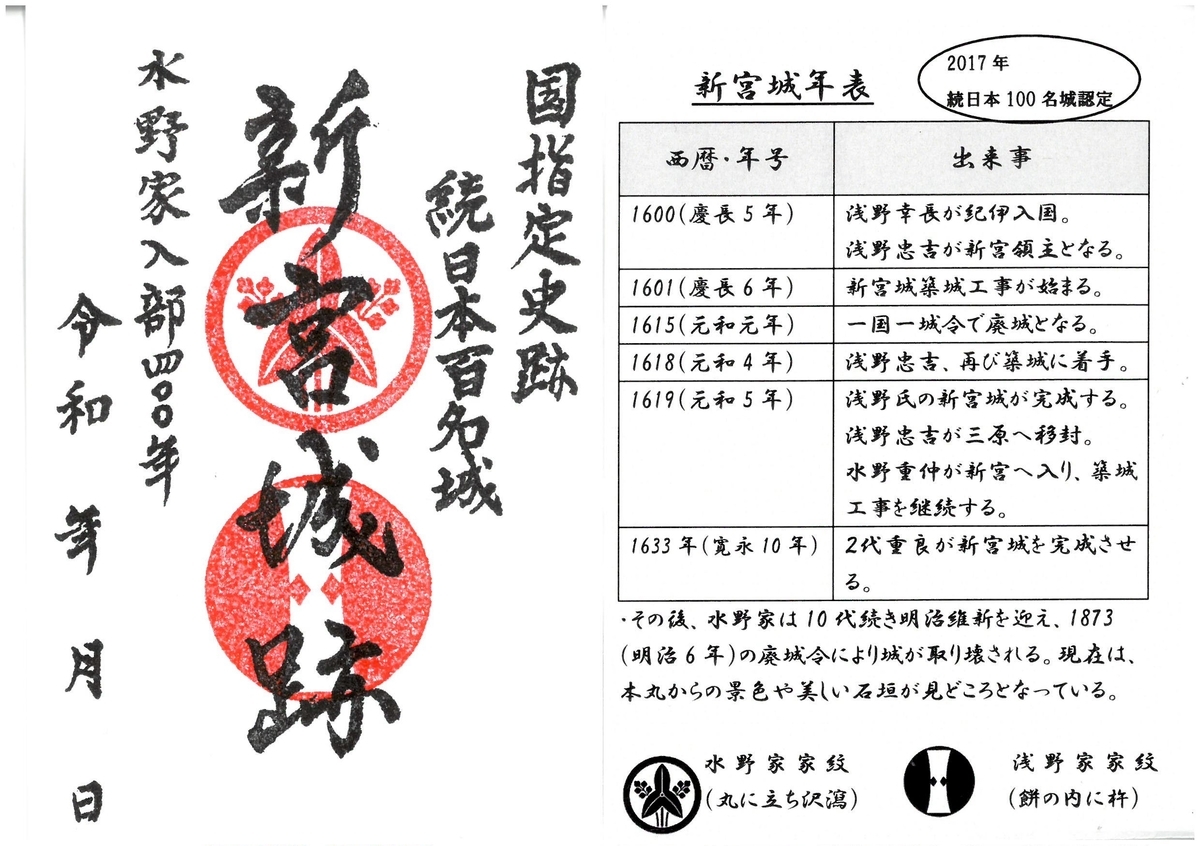 国指定史跡
続日本百名城
新宮城跡
水野家入部四〇〇年
令和 年 月 日
2017年
続日本100名城認定
新宮城年表
西暦・年号 出来事
1600(慶長5年) 浅野幸長が紀伊入国。
浅野忠吉が新宮領主となる。
1601(慶長6年) 新宮城築城工事が始まる。
1615(元和元年) 一国一城令で廃城となる。
1618(元和4年) 浅野忠吉、再び築城に着手。
1619(元和5年) 浅野氏の新宮城が完成する。
浅野忠吉が三原へ移封。
水野重仲が新宮へ入り、築城
工事を継続する。
1633年(寛永10年) 2代重良が新宮城を完成させ
る。
・その後、水野家は10代続き明治維新を迎え、1873
(明治6年)の廃城令により城が取り壊される。現在は、
本丸からの景色や美しい石垣が見どころとなっている。
水野家家紋
(丸に立ち沢瀉)
浅野家家紋
(餅の内に杵)